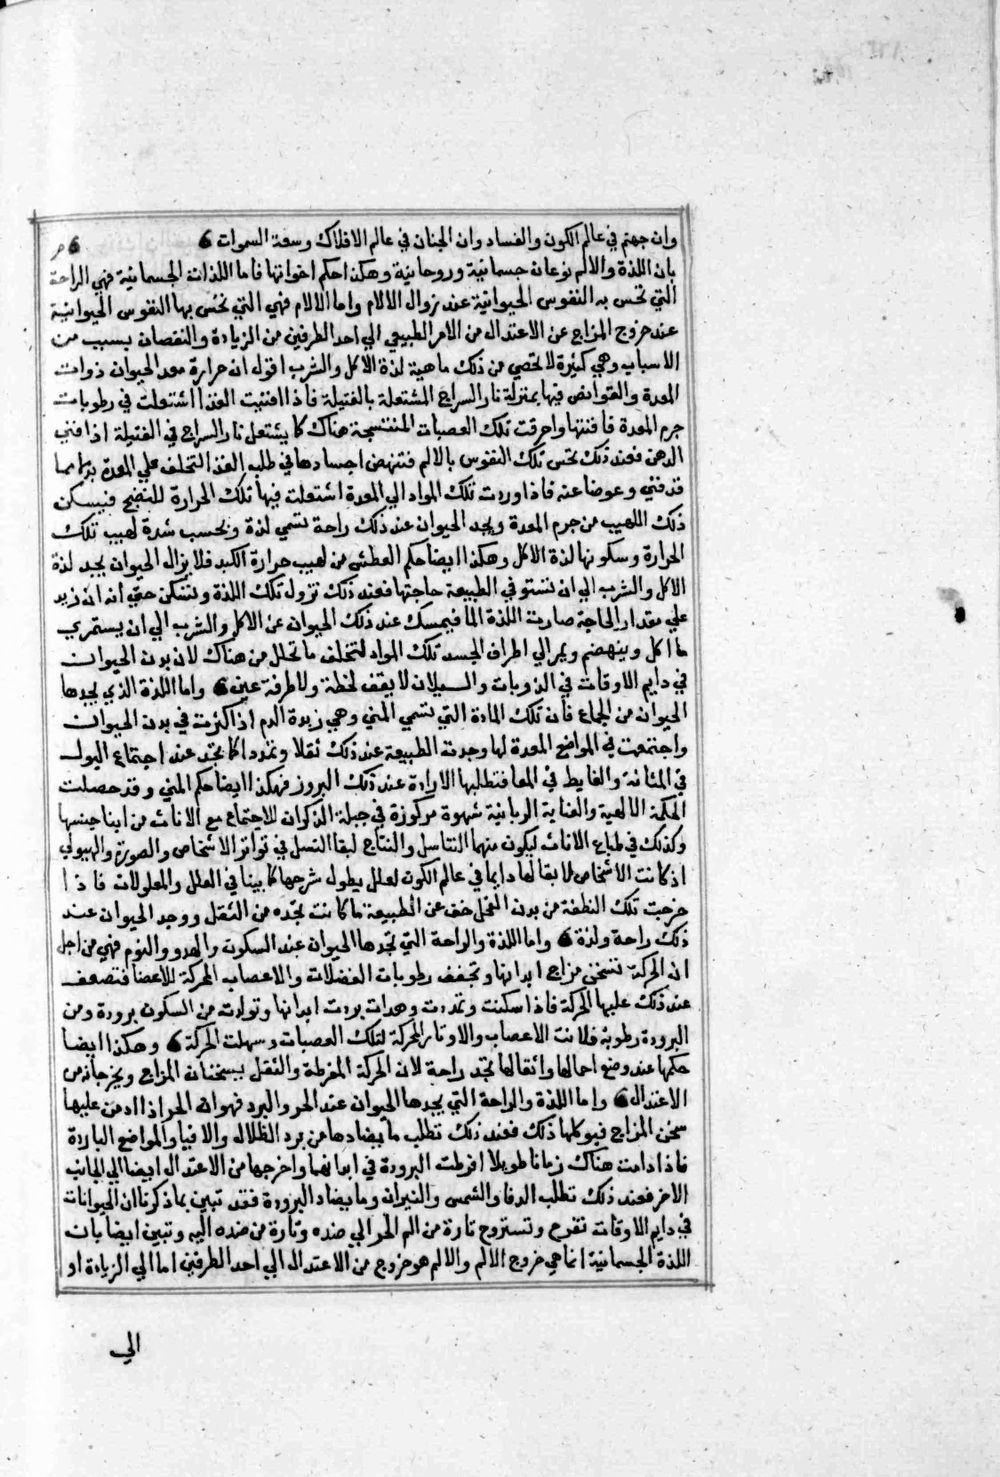 وان جهنم في عالم الكون والفساد وان الجنان في عالم الافلاك وسعة السموات 6 6
بان اللذة والالم نوعان جسمانية وروحانية وهكذا حكم اخواتها فاما اللذات الجسمانية فهي الراحة
التي تحس به النفوس الحيوانية عند زوال الالام واما الالام فهي التي تحس بها النفوس الحيوانية
عند خروج المزاج عن الاعتدال من الامر الطبيعي الي احد الطرفين من الزيادة والنقصان بسبب من
الاسباب وهي كثيرة لا تحصي من ذلك ماهية لذة الاكل والشرب اقول ان حرارة معد الحيوان ذوات
المعدة والقوانص فيها بمنزلة نار السراج المشتعلة بالفتيلة فاذا افنيت الغذا اشتعلت في رطوبات
جرم المعدة فافنتها واحرقت تلك العصبات المنتسجة هناك كما يشتعل نار السراج في الفتيلة اذا فني
الدهن فعند ذلك تحس تلك النفوس بالالم فتنهض اجسادها في طلب الغذا لتخلف علي المعدة بدلا مما
قد فني وعوضا عنه فاذا وردت تلك المواد الي المعدة اشتعلت فيها تلك الحرارة للنضج فيسكن
ذلك اللهيب من جرم المعدة ويجد الحيوان عند ذلك راحة تسمي لذة وبحسب شدة لهيب تلك
الحرارة وسكونها لذة الاكل وهكذا ايضا حكم العطش من لهيب حرارة الكبد فلا يزال الحيوان يجد لذة
الاكل والشرب الي ان تستوفي الطبيعة حاجتها فعند ذلك تزول تلك اللذة وتسكن حتي أنه ان زيد
علي مقدار الحاجة صارت اللذة الما فيمسك عند ذلك الحيوان عن الاكل والشرب الي ان يستمري
ما اكل وينهضم ويمر الي اطراف الجسد تلك المواد لتخلف ما تحلل من هناك لان بدن الحيوان
في دايم الاوقات في الذوبات والسيلان لا يقف لحظة ولا طرفة عين 6 واما اللذة الذي يجدها
الحيوان من الجماع فان تلك المادة التي تسمي المني وهي زبدة الدم اذا كثرت في بدن الحيوان
واجتمعت في المواضع المعدة لها وجدت الطبيعة عند ذلك ثقلا وتمددا كما تجد عند اجتماع البول
في المثانة والغايط في المعا فتطلبها الارادة عند ذلك البروز فهكذا ايضا حكم المني وقد حصلت
الحكمة الالهية والعناية الربانية شهوة مركوزة في جبلة الذكران للاجتماع مع الاناث من ابنا جنسها
وكذلك في طباع الاناث ليكون منهما التناسل والنتاج لبقا النسل في تواتر الاشخاص والصورة والهيولي
اذ كانت الأشخاص لا بقا لها دايما في عالم الكون لعلل يطول شرحها كما بينا في العلل والمعلولات فاذا
خرجت تلك النطفة من بدن الفحل خف عن الطبيعة ما كانت تجده من الثقل ووجد الحيوان عند
ذلك راحة ولذة 6 واما اللذة والراحة التي تجدها الحيوان عند السكون والهدو والنوم فهي من اجل
ان الحركة تسخن مزاج ابدانها وتجفف رطوبات العضلات والاعصاب المحركة للاعضا فتصعف
عند ذلك عليها الحركة فاذا سكنت وتمددت وهدات بردت ابدانها وتولدت من السكون برودة ومن
البرودة رطوبة فلانت الاعصاب والاوتار المحركة لتلك العصبات وسهلت الحركة 6 وهكذا ايضا
حكمها عند وضع احمالها واثقالها تجد راحة لان الحركة المفرطة والثقل يسخنان المزاج ويخرجانه من
الاعتدال 6 واما اللذة والراحة التي يجدها الحيوان عند الحر والبرد فهو ان الحر اذا ادمن عليها
سخن المزاج فيوكلها ذلك فعند ذلك تطلب ما يضادها من برد الظلال والافيا والمواضع الباردة
فاذا دامت هناك زمانا طويلا افرطت البرودة في ابدانها واخرجها من الاعتدال ايضا الي الجانب
الاخر فعند ذلك تطلب الدفا والشمس والنيران وما يضاد البرودة فقد تبين بما ذكرنا ان الحيوانات
في دايم الاوقات تفرح وتستروح تارة من الم الحر الي ضده وتارة من ضده اليه وتبين ايضا بان
اللذة الجسمانية انما هي خروج الألم والالم هو خروج من الاعتدال الي احد الطرفين اما الي الزيادة او
الي